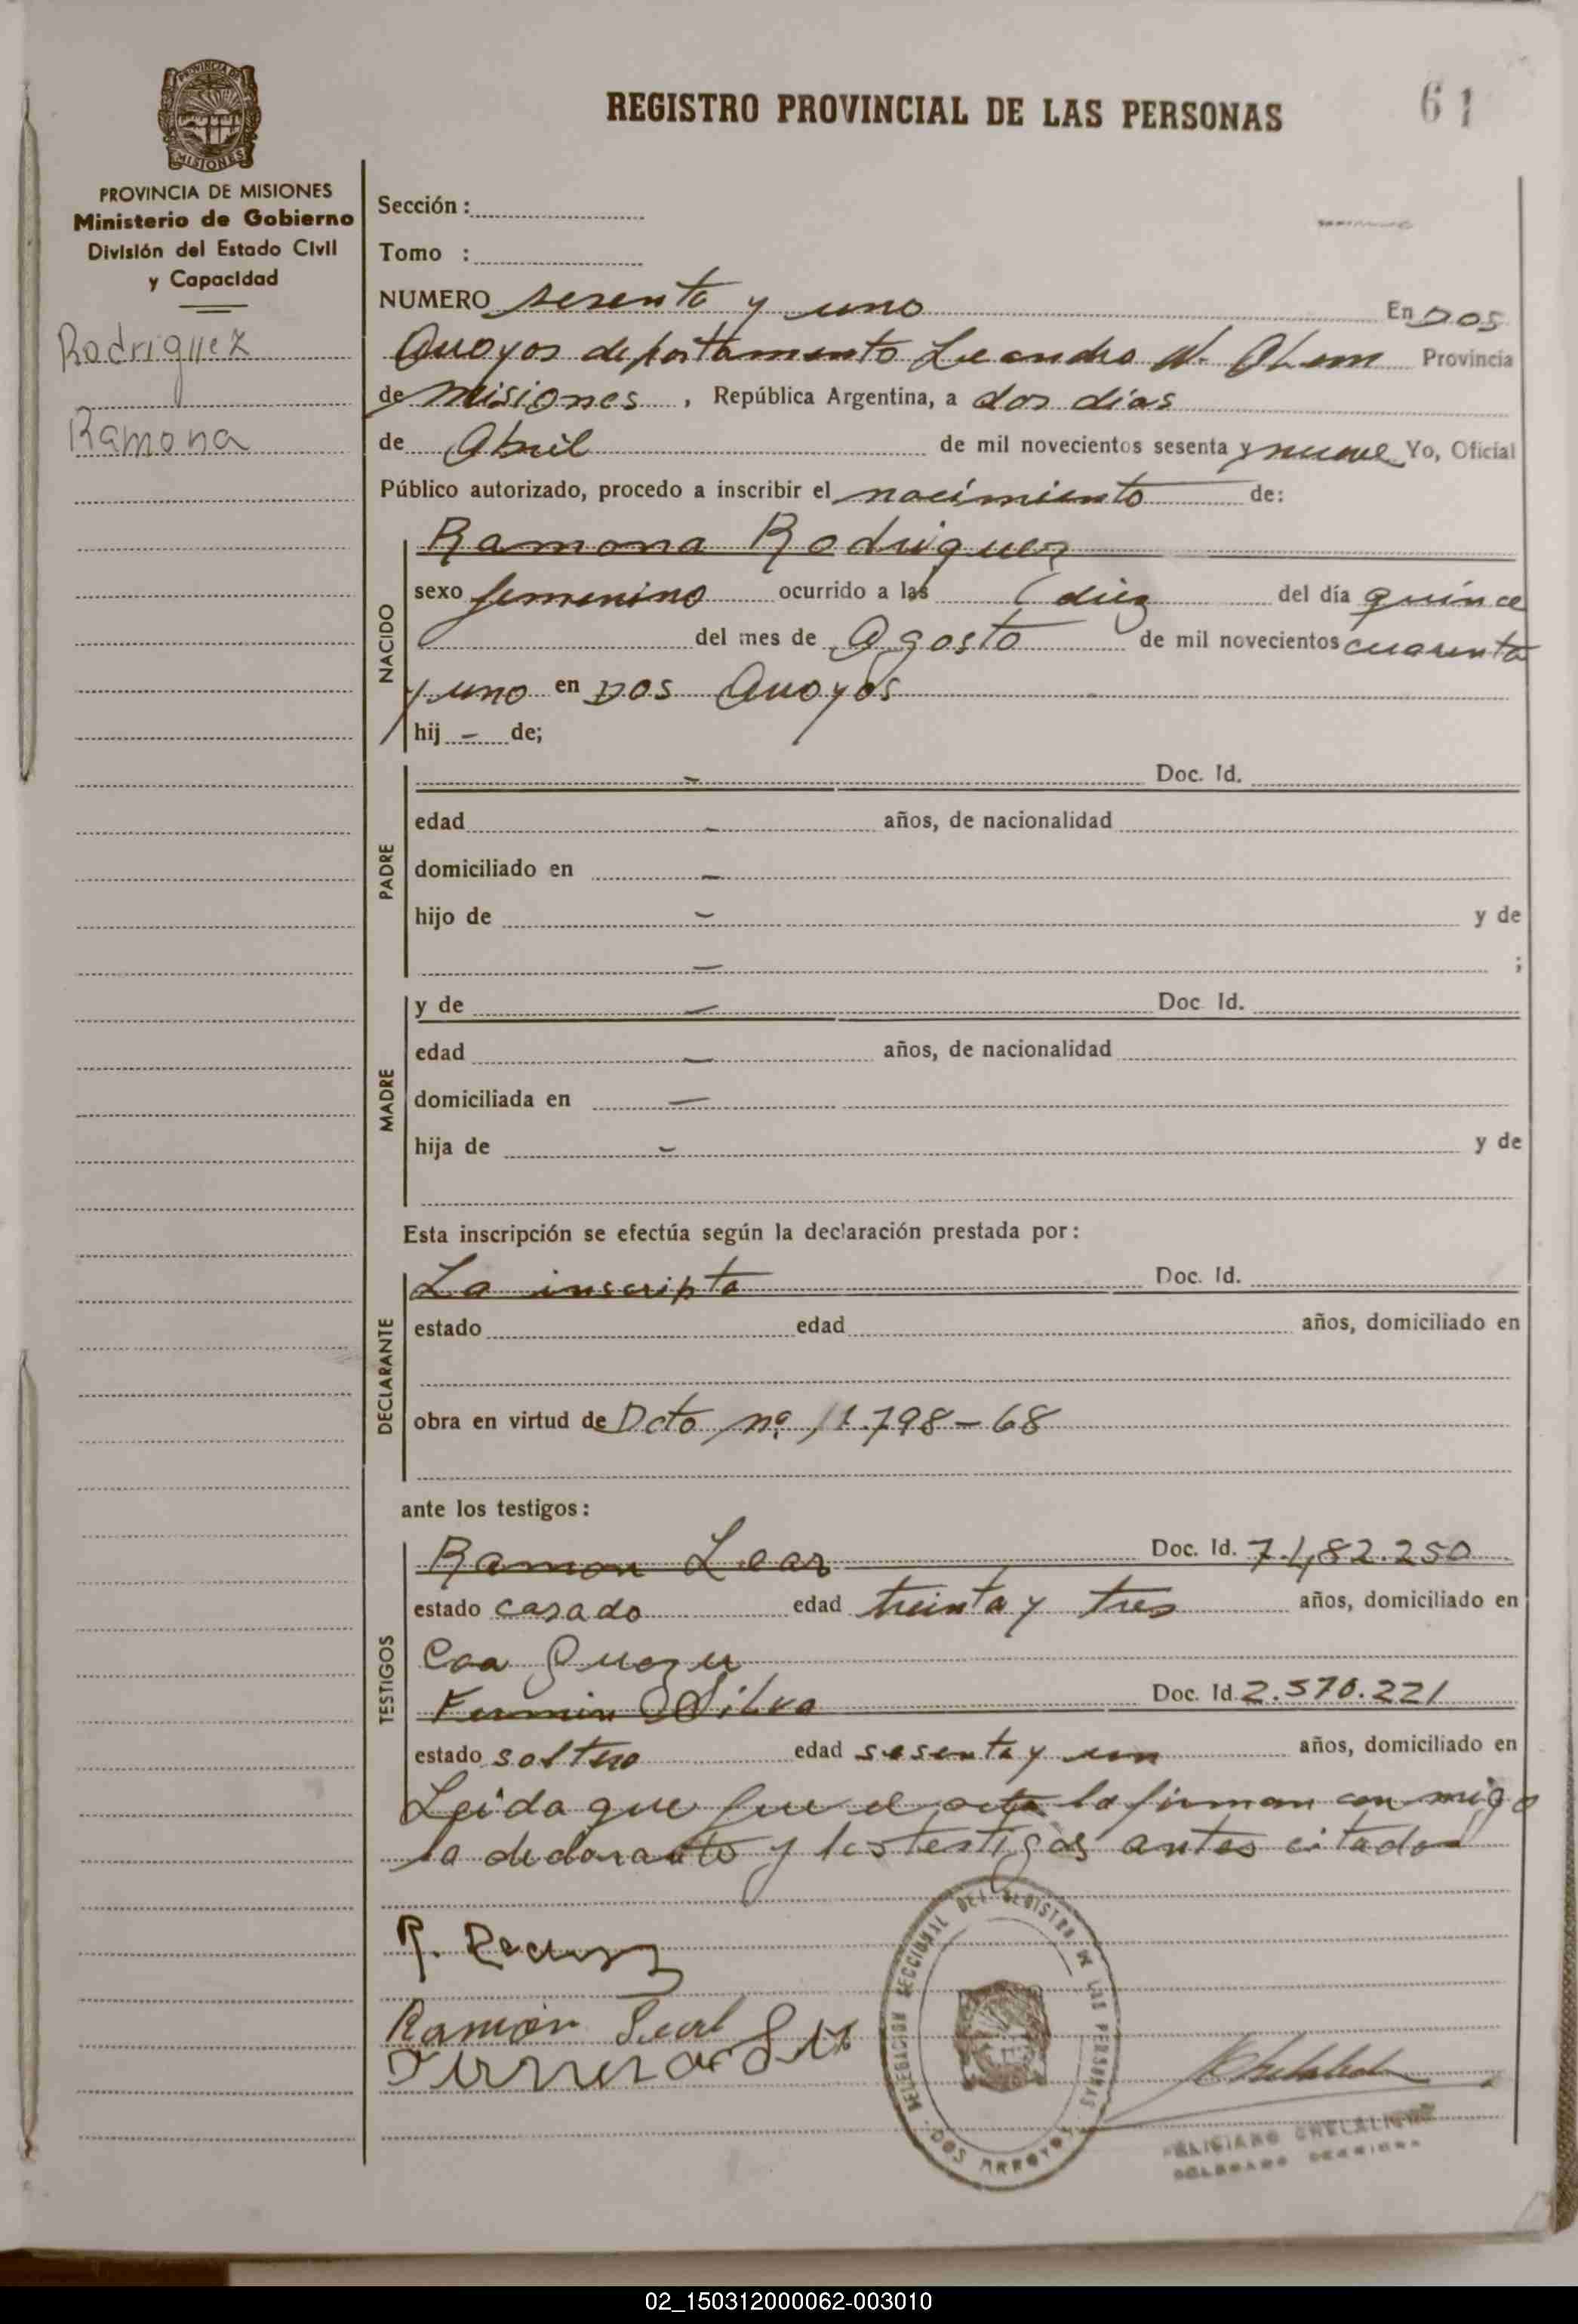 PROVINCIA DE
MISIONES
PROVINCIA DE MISIONES
Ministerio de Gobierno
División del Estado Civil
y Capacidad
Rodriguez
Ramona
REGISTRO PROVINCIAL DE LAS PERSONAS
61
Sección :
Tomo :
NUMERO sesenta y uno En Dos
Arroyos departamento Leandro N. Alem Provincia
de Misiones , República Argentina, a dos días
de Abril de mil novecientos sesenta y nueve Yo, Oficial
Público autorizado, procedo a inscribir el nacimiento de:
NACIDO
Ramona Rodriguez
sexo femenino ocurrido a las diez del día quince
del mes de Agosto de mil novecientos cuarenta
y uno en Dos Arroyos
hij - de;
PADRE
- Doc. Id.
edad - años, de nacionalidad
domiciliado en -
hijo de - y de
- ;
MADRE
y de - Doc Id.
edad - años, de nacionalidad
domiciliada en -
hija de - y de
Esta inscripción se efectúa según la declaración prestada por :
DECLARANTE
La inscripta Doc. Id.
estado edad años, domiciliado en
obra en virtud de Dcto nº 11.798-68
ante los testigos :
TESTIGOS
Ramon Leal Doc. Id. 7.482.250
estado casado edad treinta y tres años, domiciliado en
Caa Guazu
Fermin Silva Doc. Id 2.570.221
estado soltero edad sesenta y un años, domiciliado en
Leida que fue el acta la firman con migo
la declarante y los testigos antes citados
R.
Ramón Leal
DELEGACION SECCIONAL DEL REGISTRO DE LAS PERSONAS
DOS ARROYOS
FELICIANO
02_150312000062-003010